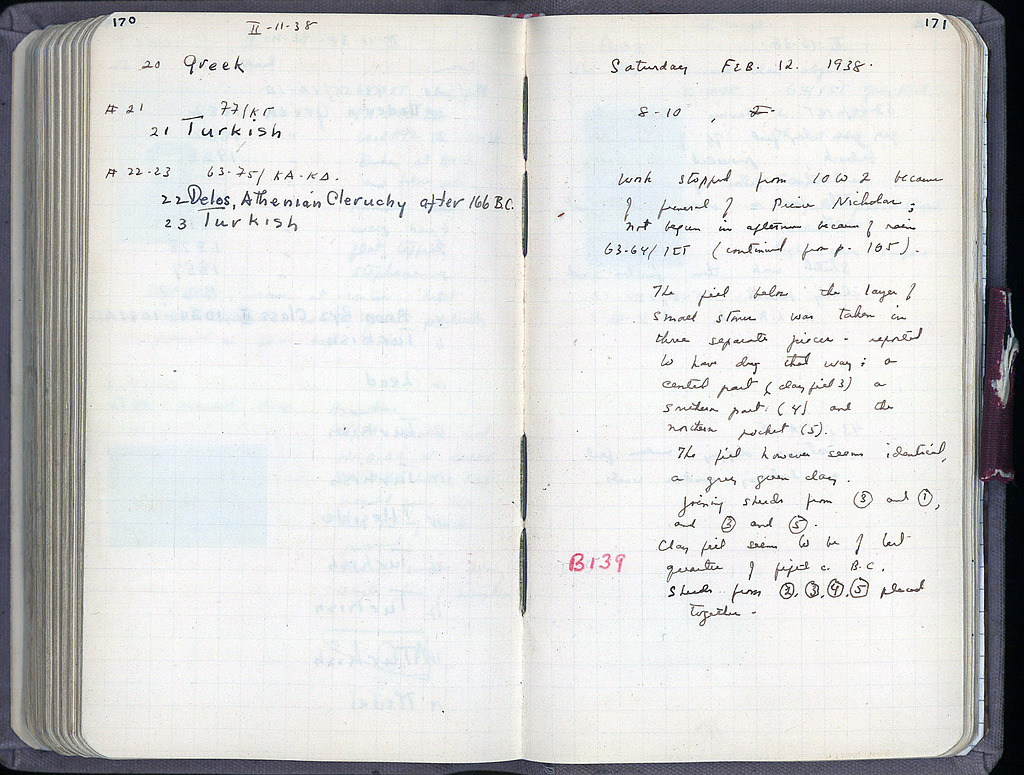 170
II-11-38
20 Greek
# 21 77/ΚΓ
21 Turkish
# 22-23 63-75/ ΚΑ-ΚΔ.
22 Delos, Athenian Cleruchy after 166 B.C.
23 Turkish
171
Saturday FEB. 12. 1938.
8-10 ,
Work stopped from 10 to 2 because
of funeral of Prince Nicholas;
not begun in afternoon because of rain
63-64/ ΙΣΤ (continued from p. 105).
The fill below the layer of
small stones was taken in
three separate pieces - reported
to have dug that way; a
central part (clay fill 3) a
southern part (4) and the
northern pocket (5).
The fill however seems identical,
a grey green clay.
Joining sherds from ③ and ①,
and ③ and ⑤.
Clay fill seems to be of last
quarter of fifth c. B.C.
B139
Sherds from ②,③,④,⑤ placed
together.